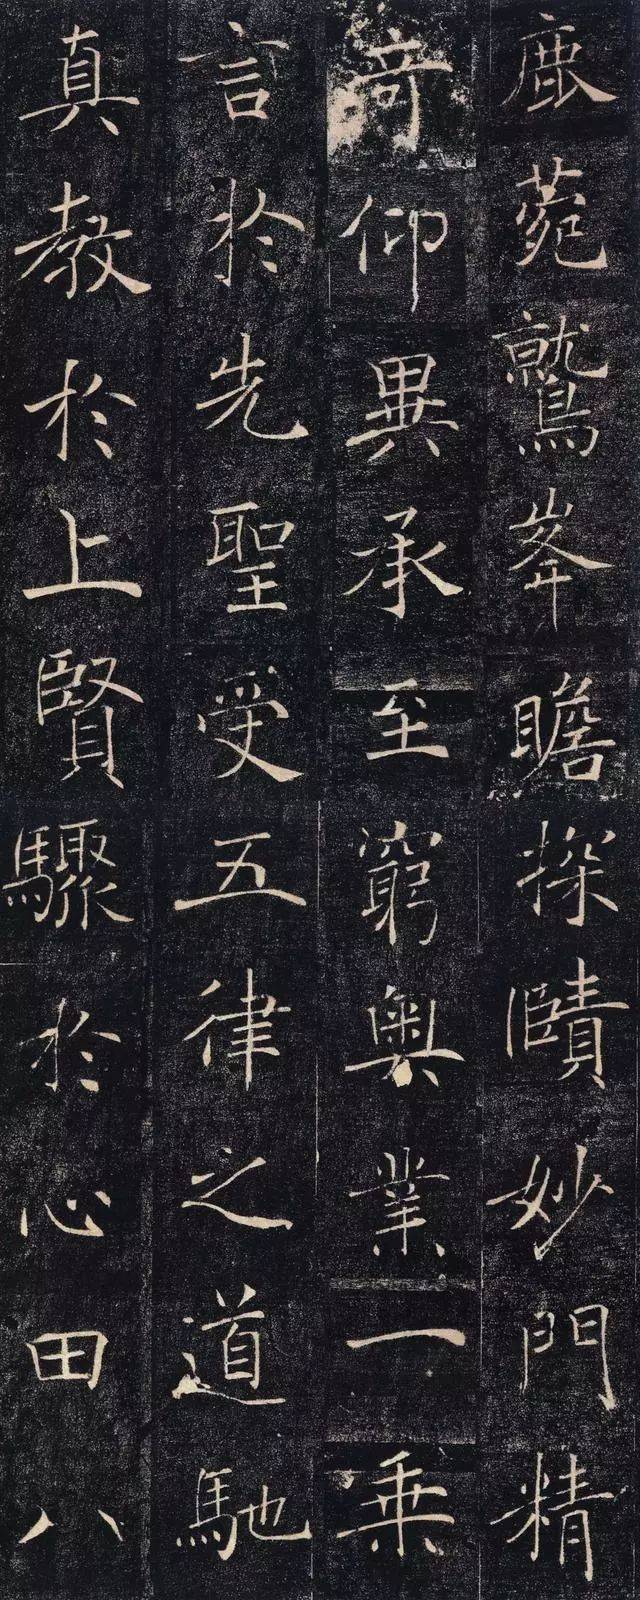 鹿菀鷲峯瞻
奇仰異承至
言於先聖受
真教於上賢
探賾妙門精
窮奥業一乘
五律之道馳
驟於心田八